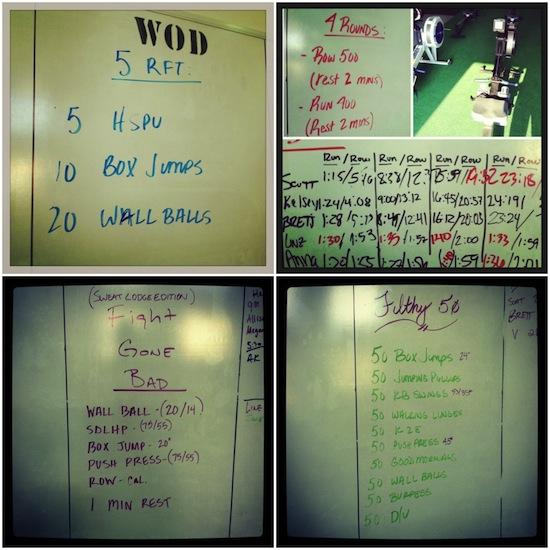 WOD
5 RFT:
5 HSPU
10 BOX JUMPS
20 WALL BALLS
4 ROUNDS:
- ROW 500
(rest 2 mins)
- RUN 400
(Rest 2 mins)
Run/Row Run/Row Run/Row Run/Row
SCOTT 1:15/5:16 8:38/12:3 23:18
Kelsey 1:24/4:08 9:00/13:12 16:45/20:57 24:19/
BRETT 1:28/5:17 12:41 16:12/20:03 23:24/
1:30/1:53 1:35/1:52 1:40/2:00 1:33/1:59
Anna 1:20/1:55 1:59 1:36/2:01
(SWEAT LODGE EDITION)
Fight
GONE
BAD
WALL BALL - (20/14)
SDLHP - (75/55)
BOX JUMP - 20"
PUSH PRESS - (75/55)
ROW - CAL.
1 MIN REST
Filthy 50
50 BOX JUMPS 24"
50 JUMPING PULLUPS
50 KB SWINGS
50 WALKING LUNGES
50 K2E
50 PUSH PRESS 45#
50 GOOD MORNINGS
50 WALL BALLS
50 BURPEES
50 D/U
BRETT
V